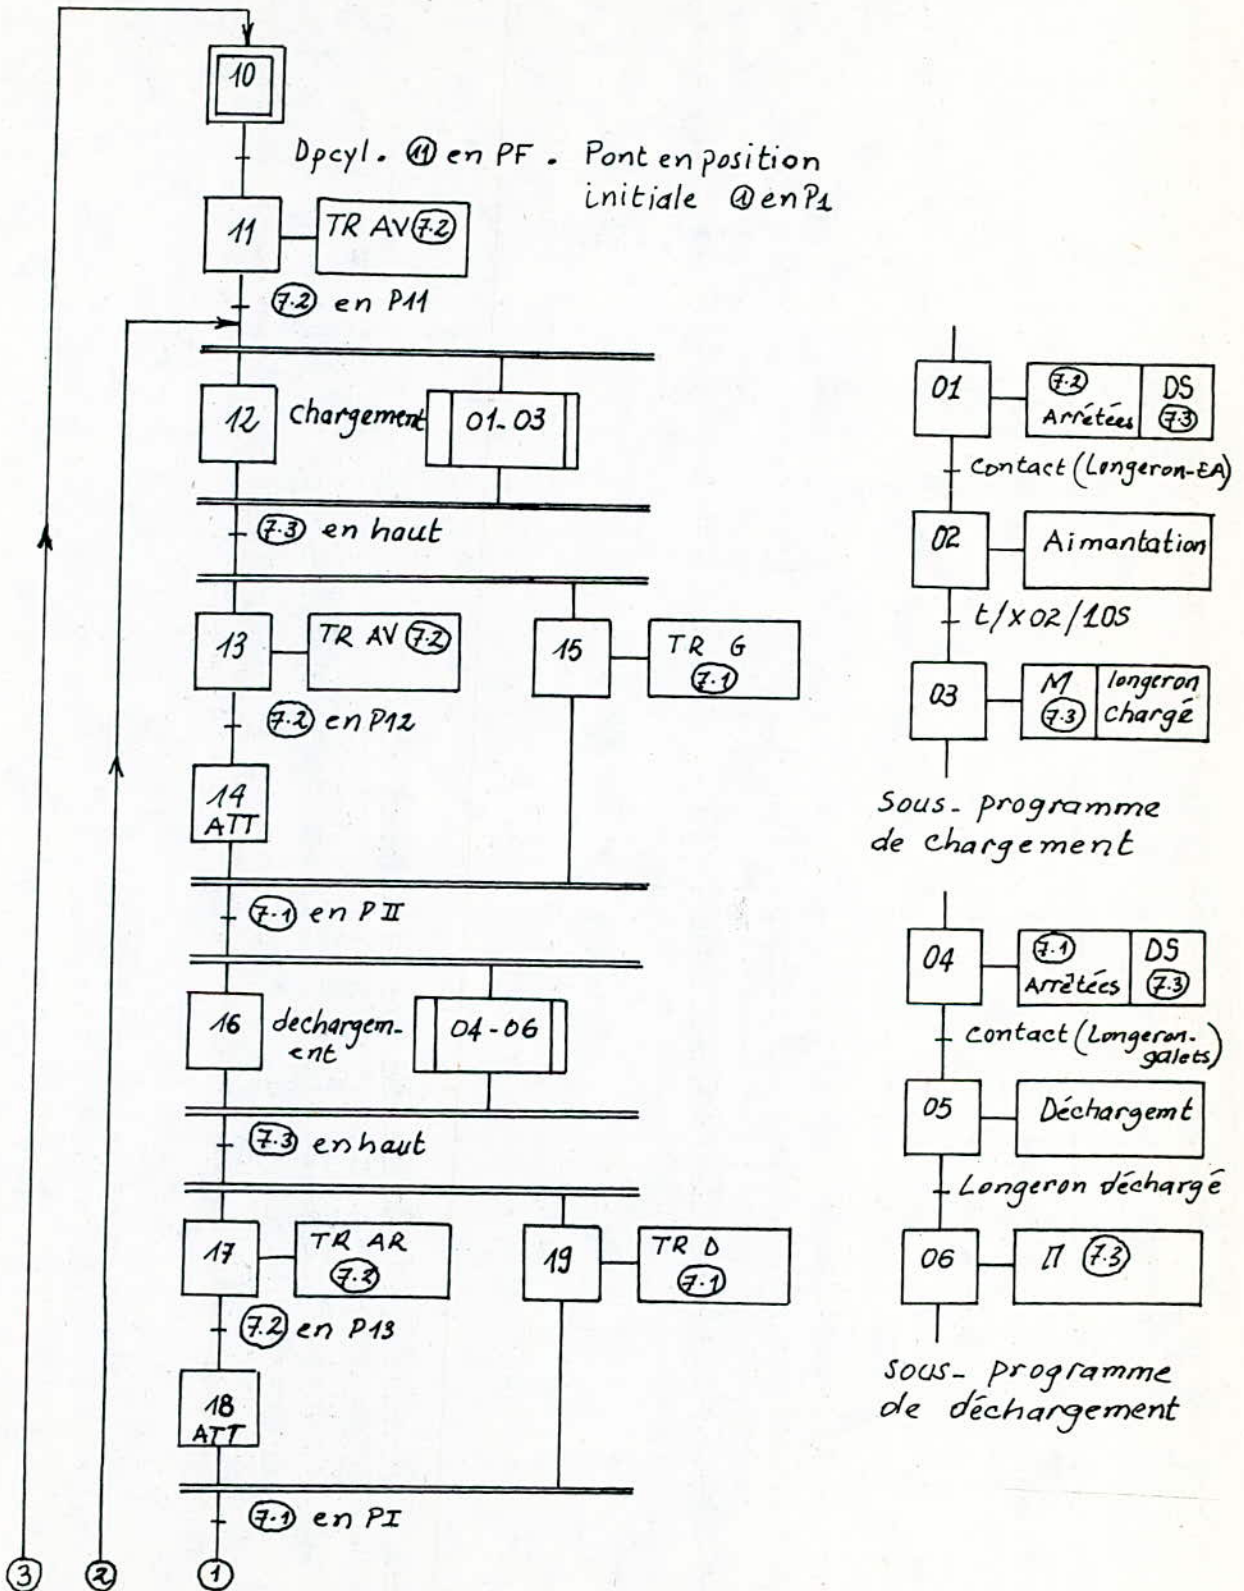 10
Dpcyl. 11 en PF. Pont en position
initiale 1 en P1
11
TR AV 7.2
7.2 en P11
12
chargement
01-03
7.3 en haut
13
TR AV 7.2
15
TR G
7.1
7.2 en P12
14
ATT
7.1 en PII
16
dechargem-
ent
04-06
7.3 en haut
17
TR AR
7.2
19
TR D
7.1
7.2 en P13
18
ATT
7.1 en PI
3
2
1
01
7.2
Arrétées
DS
7.3
contact (Longeron-EA)
02
Aimantation
t/x02/10S
03
M
7.3
longeron
chargé
Sous-programme
de chargement
04
7.1
Arrêtées
DS
7.3
contact (Longeron-
galets)
05
Déchargemt
Longeron déchargé
06
M 7.3
sous-programme
de déchargement